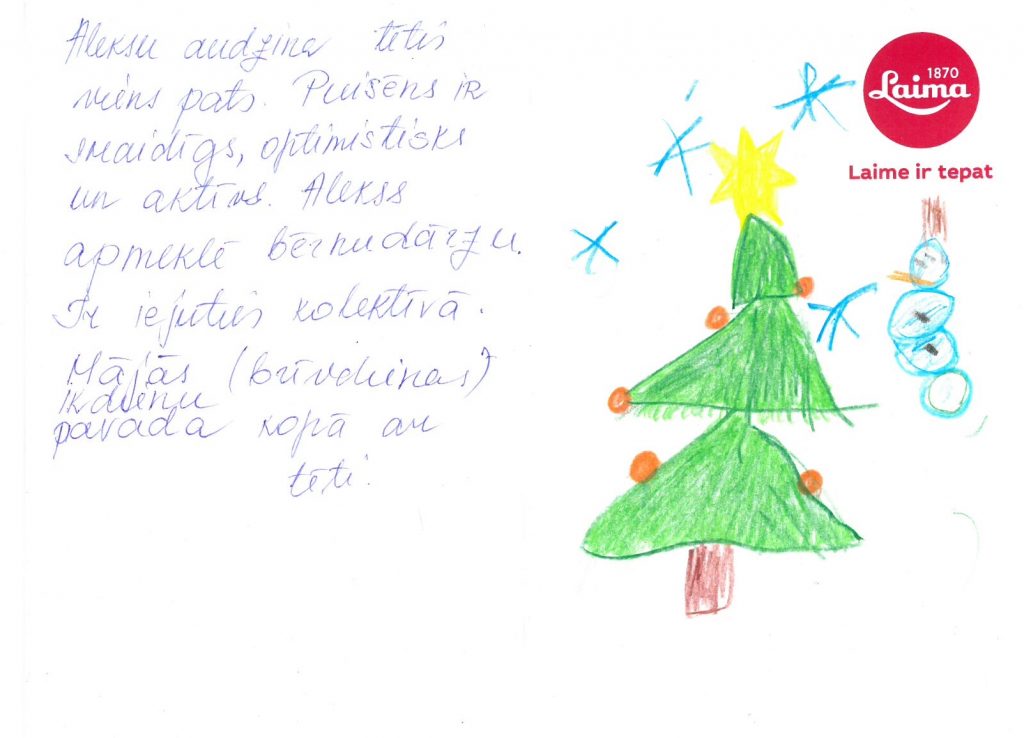 Aleksu audzina tētis
viens pats. Puisēns ir
smaidīgs, optimistisks
un aktīvs. Alekss
apmeklē bērnudārzu.
Ir iejuties kolektīvā.
Mājās (brīvdienas)
ikdienu
pavada kopā ar
tēti.
1870
Laima
Laime ir tepat